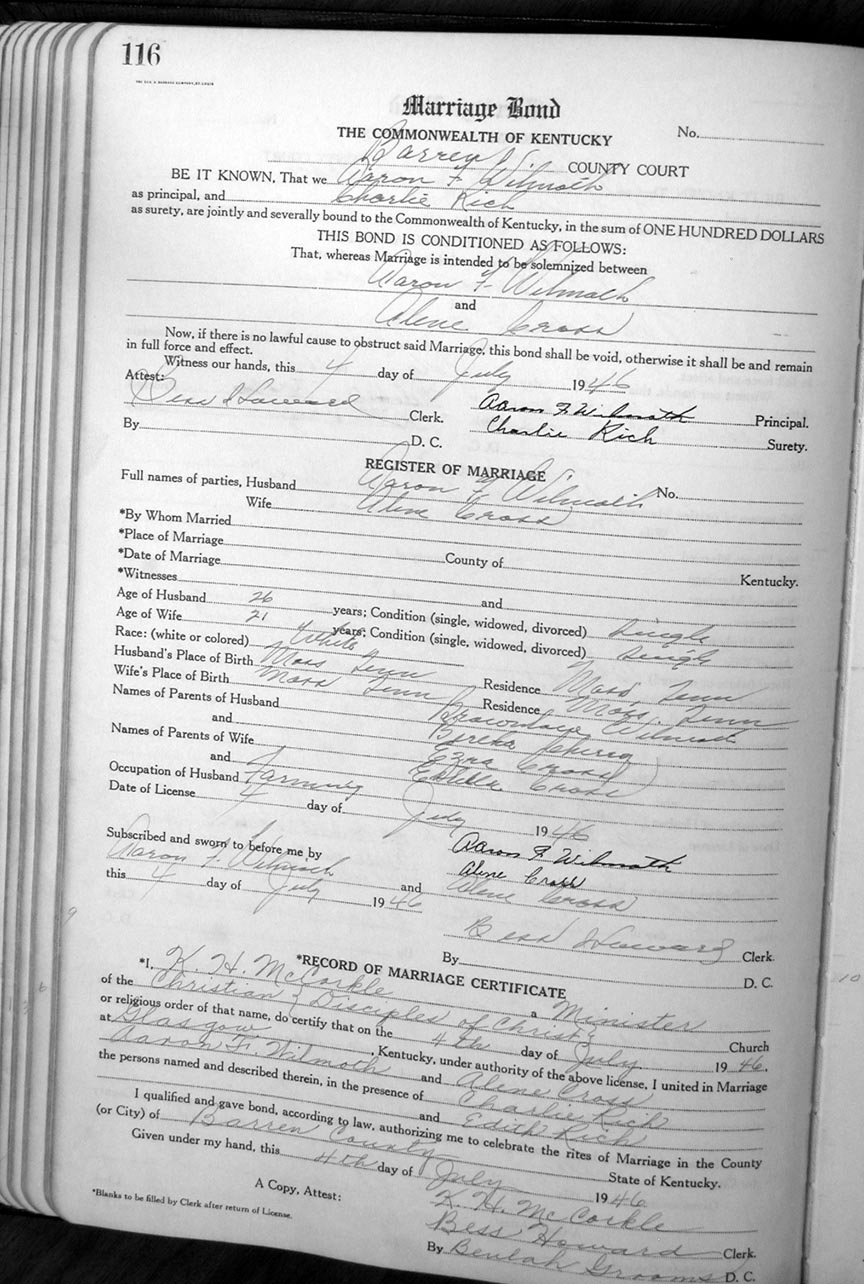 116
Marriage Bond
THE COMMONWEALTH OF KENTUCKY No.
Barren COUNTY COURT
BE IT KNOWN, That we Aaron F Wilmoth
as principal, and Charlie Rich
as surety, are jointly and severally bound to the Commonwealth of Kentucky, in the sum of ONE HUNDRED DOLLARS
THIS BOND IS CONDITIONED AS FOLLOWS:
That, whereas Marriage is intended to be solemnized between
Aaron F. Wilmoth
and
Alene Cross
Now, if there is no lawful cause to obstruct said Marriage, this bond shall be void, otherwise it shall be and remain
in full force and effect.
Witness our hands, this 4 day of July 1946
Attest:
Bess Howard Clerk. Aaron F. Wilmoth Principal.
By D. C. Charlie Rich Surety.
REGISTER OF MARRIAGE
Full names of parties, Husband Aaron F Wilmoth No.
Wife Alene Cross
*By Whom Married
*Place of Marriage County of Kentucky.
*Date of Marriage
*Witnesses and
Age of Husband 26 years; Condition (single, widowed, divorced) single
Age of Wife 21 years; Condition (single, widowed, divorced) single
Race: (white or colored) White
Husband's Place of Birth Moss Tenn Residence Moss, Tenn
Wife's Place of Birth Moss Tenn Residence Moss, Tenn
Names of Parents of Husband Wilmoth
and
Names of Parents of Wife Ezra Cross
and Cross
Occupation of Husband Farming
Date of License 4 day of July 1946
Subscribed and sworn to before me by Aaron F Wilmoth
Aaron F. Wilmoth and Alene Cross
Alene Cross
this 4 day of July 1946
Bess Howard Clerk
By D. C.
*RECORD OF MARRIAGE CERTIFICATE
*I, K. H. McCorkle a Minister
of the Christian, Disciples of Christ, Church
or religious order of that name, do certify that on the 4th day of July 1946.
at Glasgow, Kentucky, under authority of the above license, I united in Marriage
Aaron F. Wilmoth and Alene Cross
the persons named and described therein, in the presence of Charlie Rich
and Edith Rich
I qualified and gave bond, according to law, authorizing me to celebrate the rites of Marriage in the County
(or City) of Barren County State of Kentucky.
Given under my hand, this 4th day of July 1946
K. H. McCorkle
A Copy, Attest: Bess Howard Clerk.
*Blanks to be filled by Clerk after return of License.
By Beulah Grooms D. C.